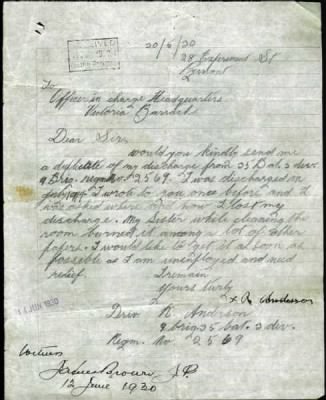 20/6/30
28 Experience St
To
Officer in charge Headquarters
Victoria Barracks
Dear Sir,
would you kindly send me
a duplicate of my discharge from 35 Bat. 3 div.
9 Brig. regm. No. 2569. I was discharged on
July I wrote to you once before and I
was asked where and how I lost my
discharge. My Sister while cleaning the
room burned it among a lot of other
papers. I would like to get it as soon as
possible as I am unemployed and need
relief.
I remain
yours truly
x R. Anderson
Driv. R. Anderson
9 brig 35 bat. 3 div.
Regm. No 2569
14 JUN 1930
Witness
James Brown J.P.
12 June 1930